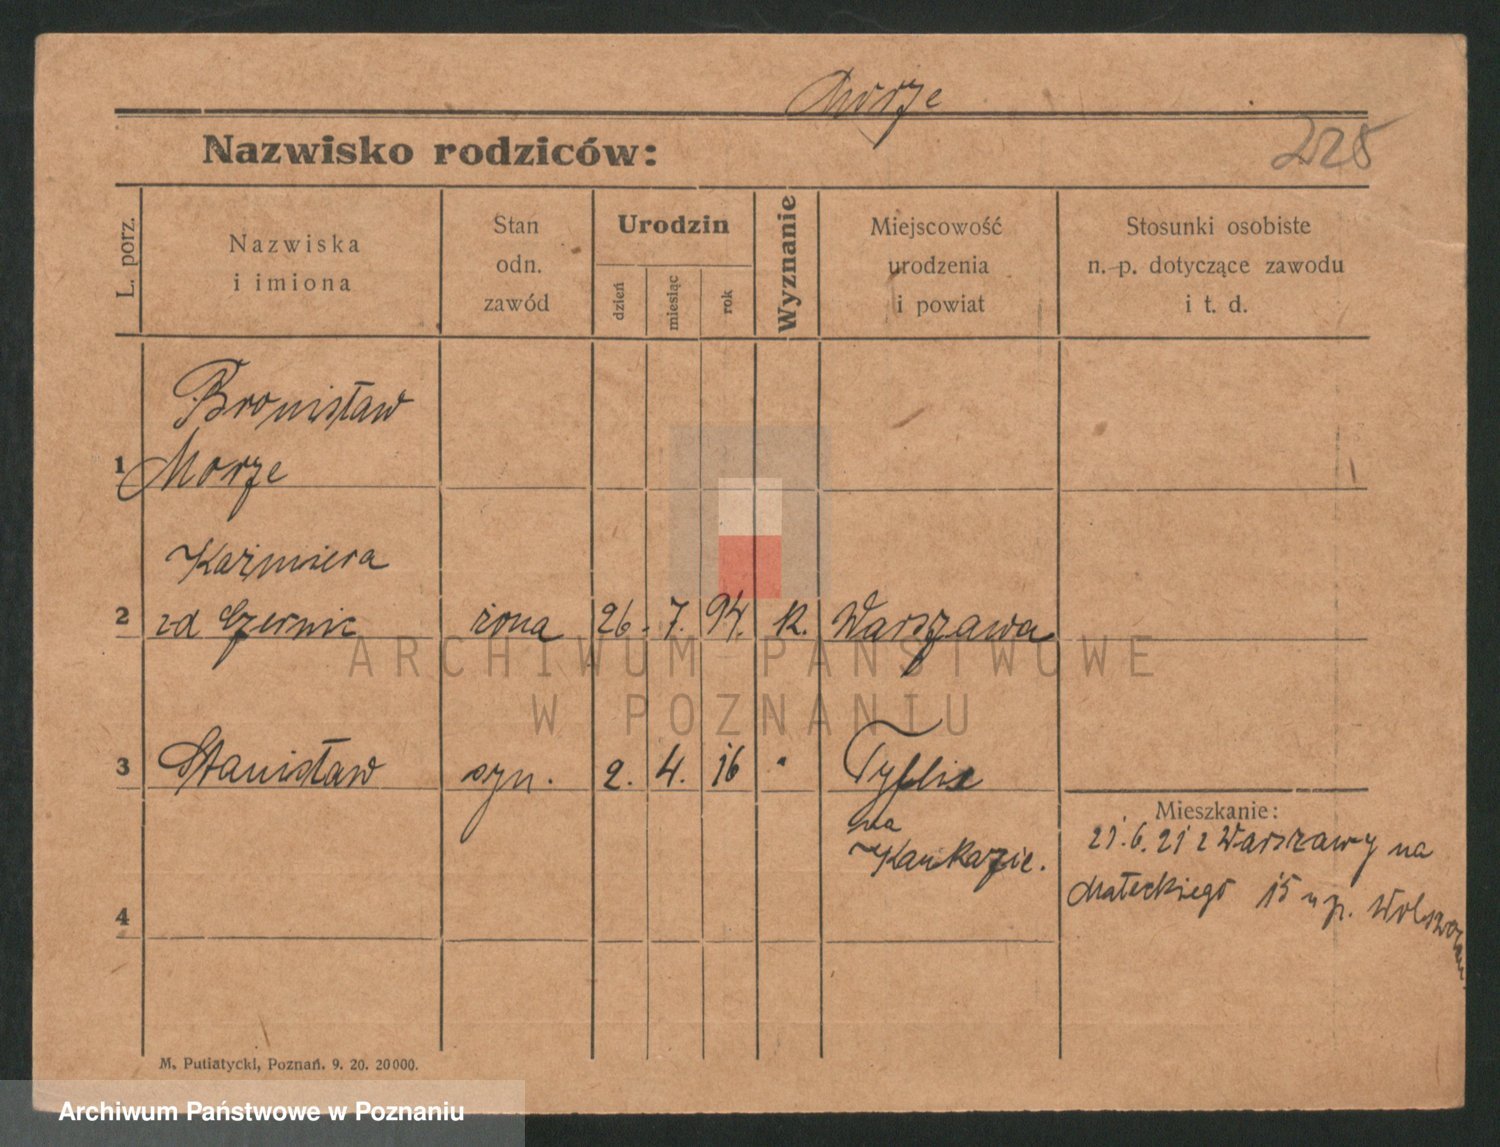 Morze
225
Nazwisko rodziców:
L. porz.
Nazwiska
i imiona
Stan
odn.
zawód
Urodzin
dzień
miesiąc
rok
Wyznanie
Miejscowość
urodzenia
i powiat
Stosunki osobiste
n. p. dotyczące zawodu
i t. d.
Bronisław
1 Morze
Kaźmiera
2 zd Czernic żona 26. 7. 94. k. Warszawa
ARCHIWUM PAŃSTWOWE
W POZNANIU
3 Stanisław syn. 2. 4. 16 " Tyflis
na
Kaukazie.
Mieszkanie:
21.6.21 z Warszawy na
Małeckiego 15 u p.
4
M. Putiatycki, Poznań. 9. 20. 20000.
Archiwum Państwowe w Poznaniu